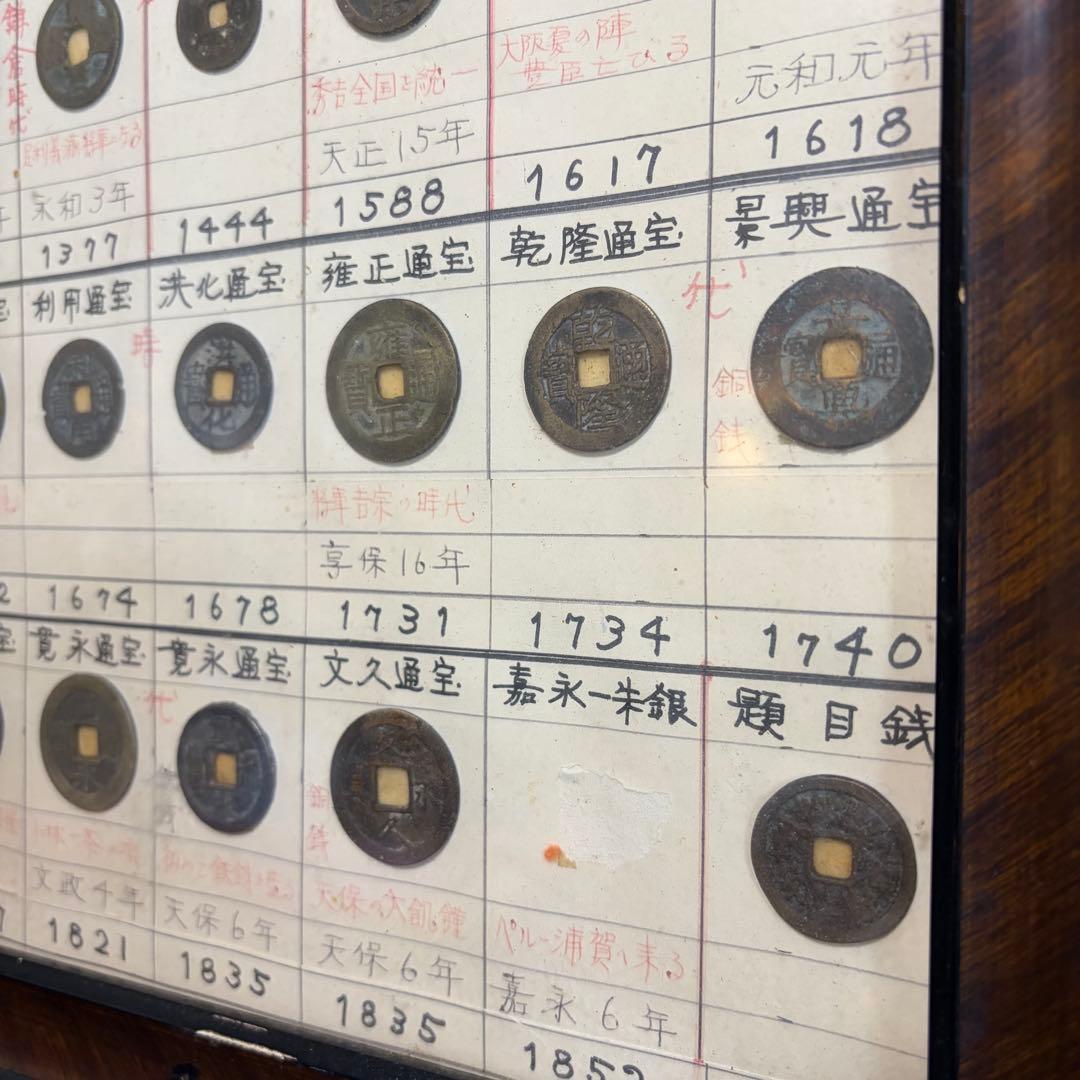 鎌倉時代
足利義満将軍となる
永和3年
1377
1444
秀吉全国を統一
天正15年
1588
大阪夏の陣
豊臣亡びる
1617
元和元年
1618
利用通宝
時
1674
洪化通宝
洪化通
1678
雍正通宝
雍正通寶
将軍吉宗の時代
享保16年
1731
乾隆通宝
乾隆通寶
1734
代
景興通宝
景興通寶
銅
銭
1740
寛永通宝
小林一茶の
文政4年
1821
代
寛永通宝
天保6年
1835
文久通宝
文久永
天保の大飢饉
天保6年
1835
嘉永一朱銀
ペルー浦賀に来る
嘉永6年
185
題目銭